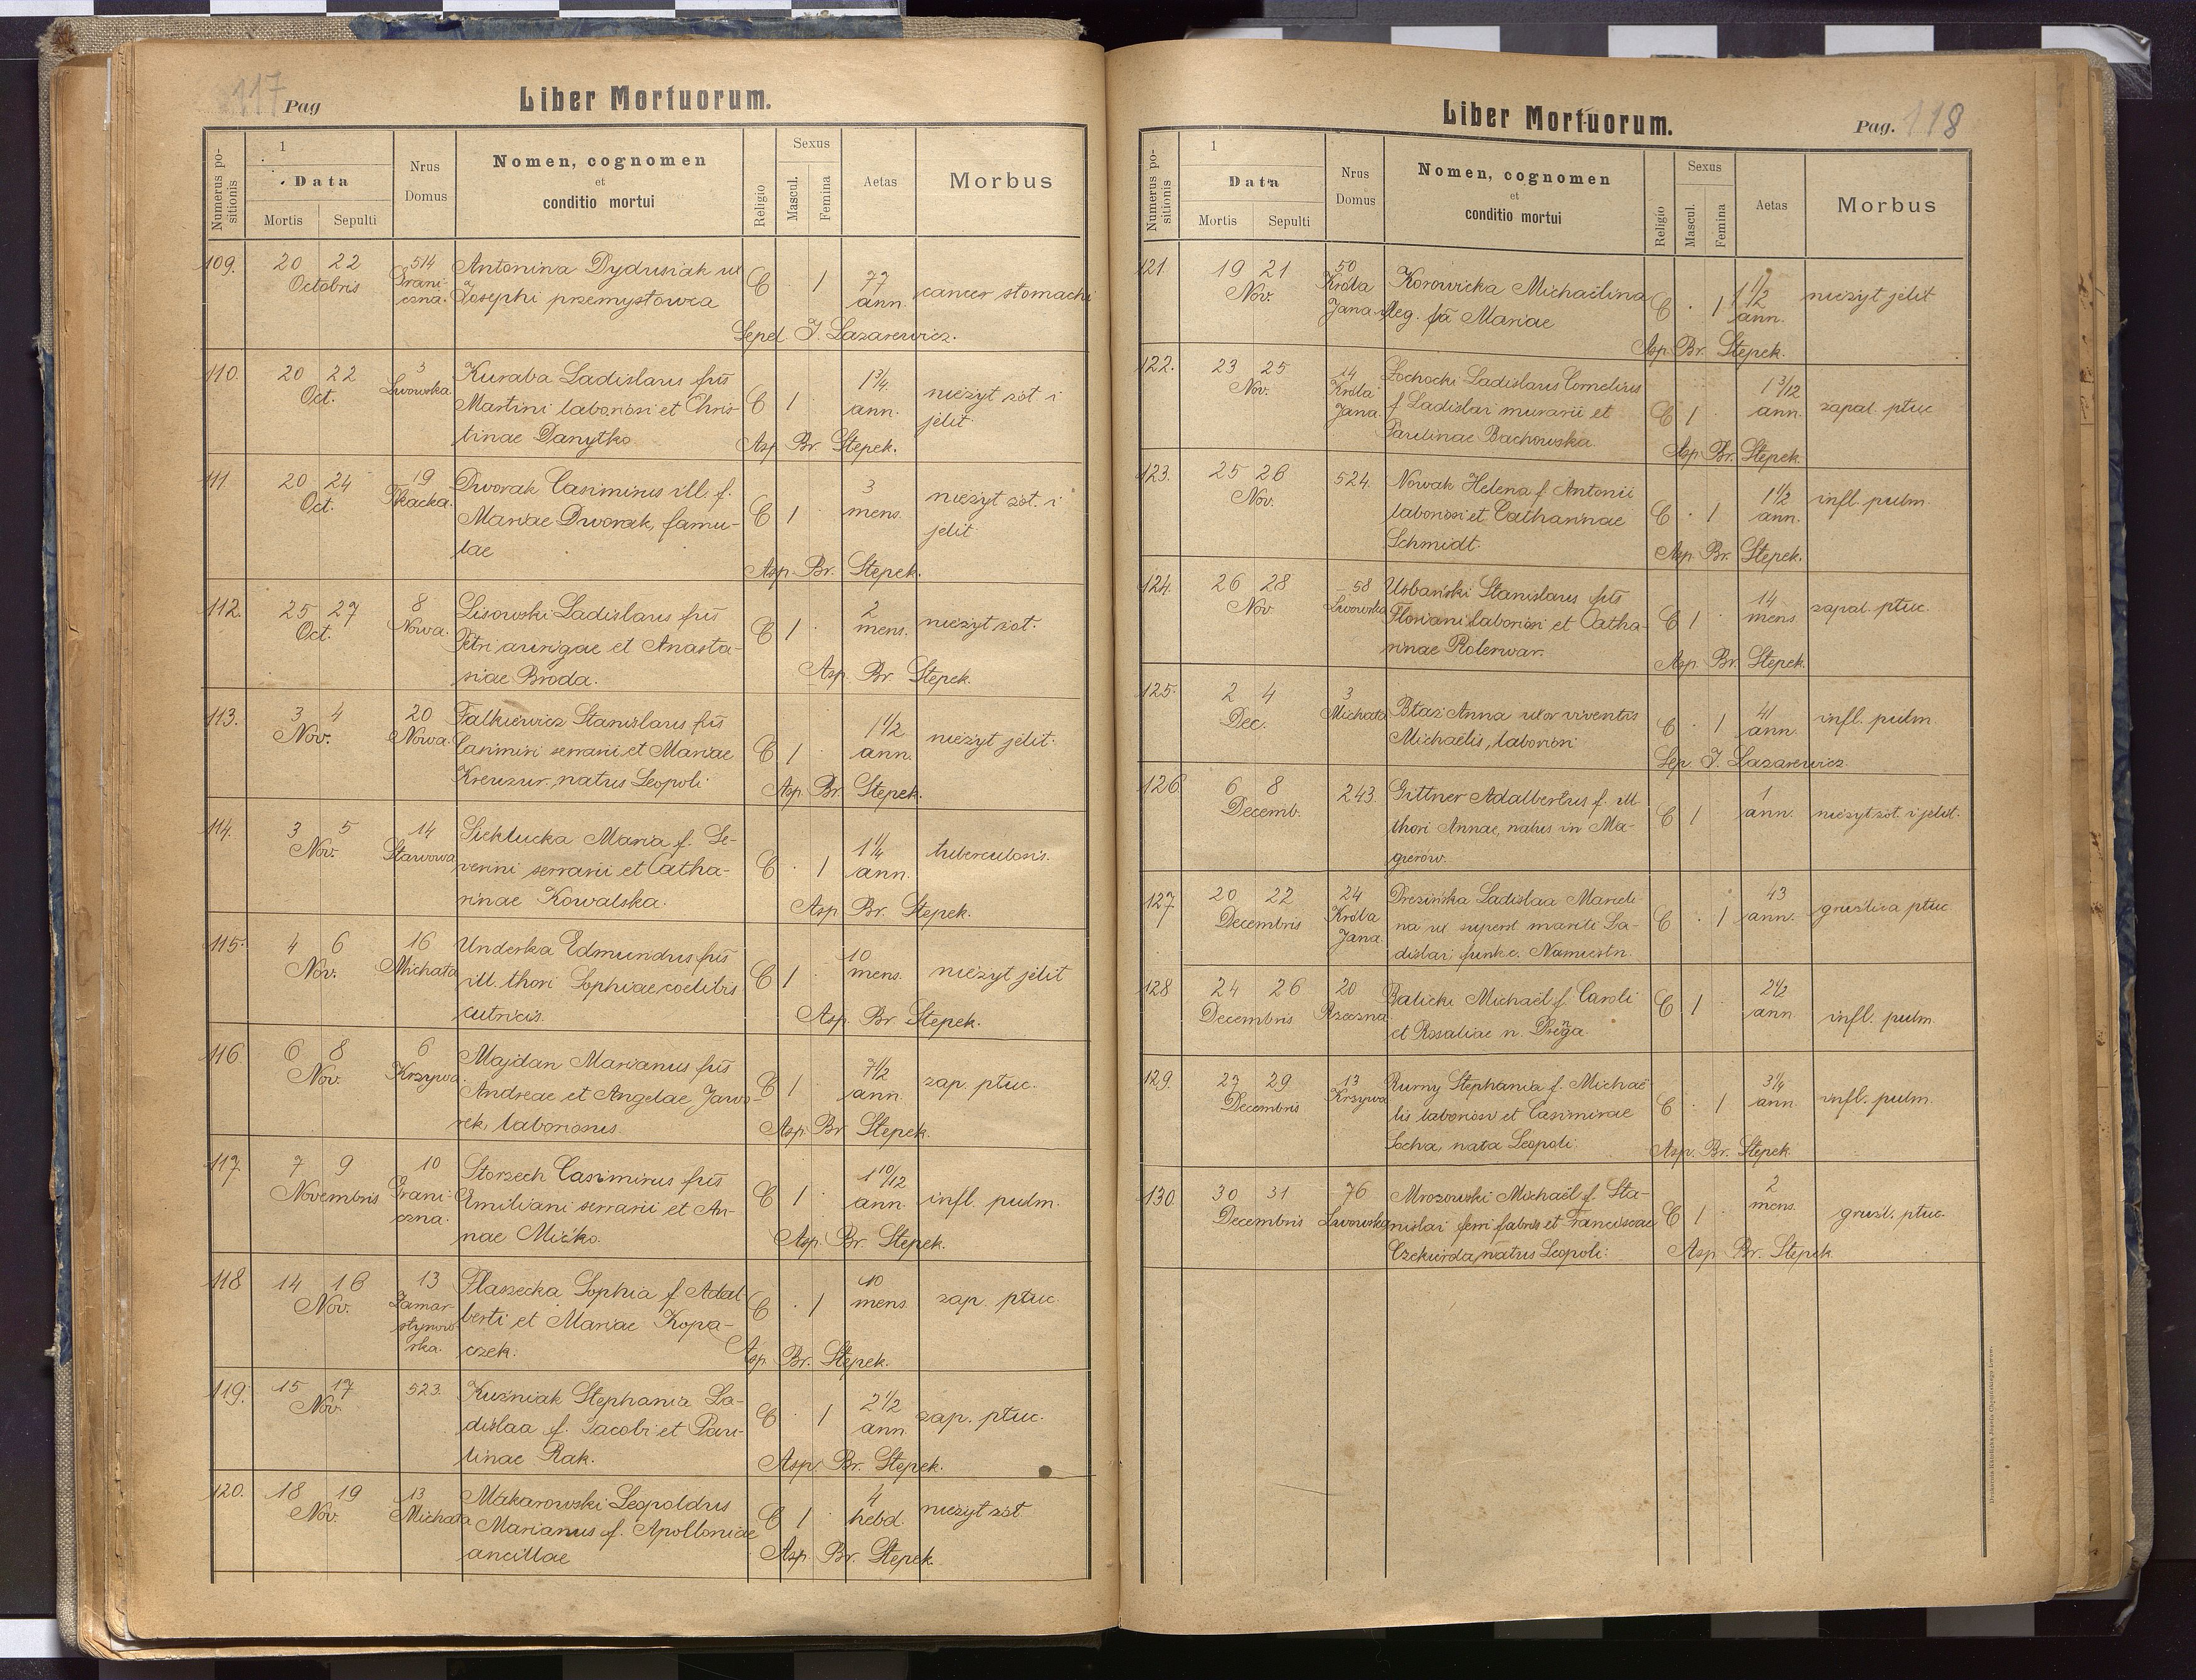 117 Pag
Liber Mortuorum.
Numerus positionis
1
Data
Mortis Sepulti
Nrus Domus
Nomen, cognomen
et
conditio mortui
Religio
Sexus
Mascul. Femina
Aetas
Morbus
109. 20 22 514 Antonina Dydusiak ux
Octobris Grani- C 1 77 cancer stomachi
czna. Josephi przemysłowca ann.
Sepel. J. Lazarewicz.
110. 20 22 3 Kuraba Ladislaus fils
Oct. Lwowska Martini laboriosi et Chris- C 1 1 3/4 ann. nieżyt żoł i
tinae Danytko jelit.
Asp. Br. Stepek.
111. 20 24 19 Dworak Casimirus ill. f.
Oct. Tkacka. Mariae Dworak, famu- C 1 3 mens. nieżyt żoł. i
lae jelit
Asp. Br. Stepek.
112. 25 27 8 Lisowski Ladislaus fils
Oct. Nowa. Petri aurigae et Anasta- C 1 2 mens. nieżyt żoł.
siae Broda.
Asp. Br. Stepek.
113. 3 4 20 Falkiewicz Stanislaus fils
Nov. Nowa. Casimiri serrarii et Mariae C 1 1 1/2 ann. nieżyt jelit.
Kreuzur, natus Leopoli
Asp. Br. Stepek.
114. 3 5 14 Siektucka Maria f. Se-
Nov. Stawowa verini serrarii et Catha- C 1 1 1/4 ann. tuberculosis.
rinae Kowalska.
Asp. Br. Stepek.
115. 4 6 16 Underka Edmundus fils
Nov. Michała ill. thori Sophiae coelibis C 1 10 mens. nieżyt jelit
sutricis.
Asp. Br. Stepek.
116. 6 8 6 Majdan Marianus fils
Nov. Krzywa. Andreae et Angelae Jawo- C 1 7 1/2 ann. zap. płuc.
rek, laboriosus.
Asp. Br. Stepek.
117. 7 9 10 Storzech Casimirus fils
Novembris Grani- Emiliani serrarii et An- C 1 1 10/12 ann. infl. pulm.
czna. nae Mićko.
Asp. Br. Stepek.
118 14 16 13 Flaszecka Sophia f. Adal
Nov. Zamar- berti et Mariae Kopa- C 1 10 mens. zap. płuc.
stynow-
ska. czek.
Asp. Br. Stepek.
119. 15 17 523. Kuźniak Stephania La-
Nov. dislaa f. Jacobi et Pau- C 1 2 1/2 ann. zap. płuc.
linae Rak.
Asp. Br. Stepek.
120. 18 19 13 Makarowski Leopoldus
Nov. Michała Marianus f. Apolloniae C 1 4 hebd. nieżyt żoł.
ancillae
Asp. Br. Stepek.
Liber Mortuorum.
Pag. 118
Numerus positionis
1
Data
Mortis Sepulti
Nrus Domus
Nomen, cognomen
et
conditio mortui
Religio
Sexus
Mascul. Femina
Aetas
Morbus
121. 19 21 50 Korowicka Michaëlina
Nov. Króla C 1 1 1/2 ann. nieżyt jelit
Jana. illeg. fa Mariae
Asp. Br. Stepek.
122. 23 25 14 Łochocki Ladislaus Cornelius
Nov. Króla f. Ladislai murarii et C 1 1 3/12 ann. zapal. płuc
Jana. Paulinae Bachowska.
Asp. Br. Stepek.
123. 25 26 524. Nowak Helena f. Antonii
Nov. laboriosi et Catharinae C 1 1 1/2 ann. infl. pulm.
Schmidt.
Asp. Br. Stepek.
124. 26 28 58 Urbański Stanislaus fils
Nov. Lwowska Floriani laboriosi et Catha- C 1 14 mens zapal. płuc.
rinae Rolerwar.
Asp. Br. Stepek.
125. 2 4 3 Błaż Anna uxor viventis
Dec. Michała Michaëlis, laboriosi C 1 41 ann. infl. pulm.
Sep. J. Lazarewicz.
126. 6 8 243. Gittner Adalbertus f. ill
Decemb. thori Annae, natus in Ma- C 1 1 ann. nieżyt żoł. i jelit.
gierów.
127. 20 22 24 Drezińska Ladislaa Marceli
Decembris Króla na ux superst mariti La- C 1 43 ann. gruźlica płuc
Jana. dislai, funkc. Namiestn.
128. 24 26 20 Balicki Michaël f. Caroli
Decembris Rzeczna. et Rosaliae n. Dręga. C 1 2 1/2 ann. infl. pulm.
129. 27 29 13 Rumy Stephania f. Michaë
Decembris Krzywa lis laboriosi et Casimirae C 1 3 1/4 ann. infl. pulm.
Socha, nata Leopoli.
Asp. Br. Stepek.
130. 30 31 76 Mrozowski Michaël f. Sta-
Decembris Lwowska nislai ferri fabris et Franciscae C 1 2 mens. gruźl. płuc.
Czekurda, natus Leopoli.
Asp. Br. Stepek.